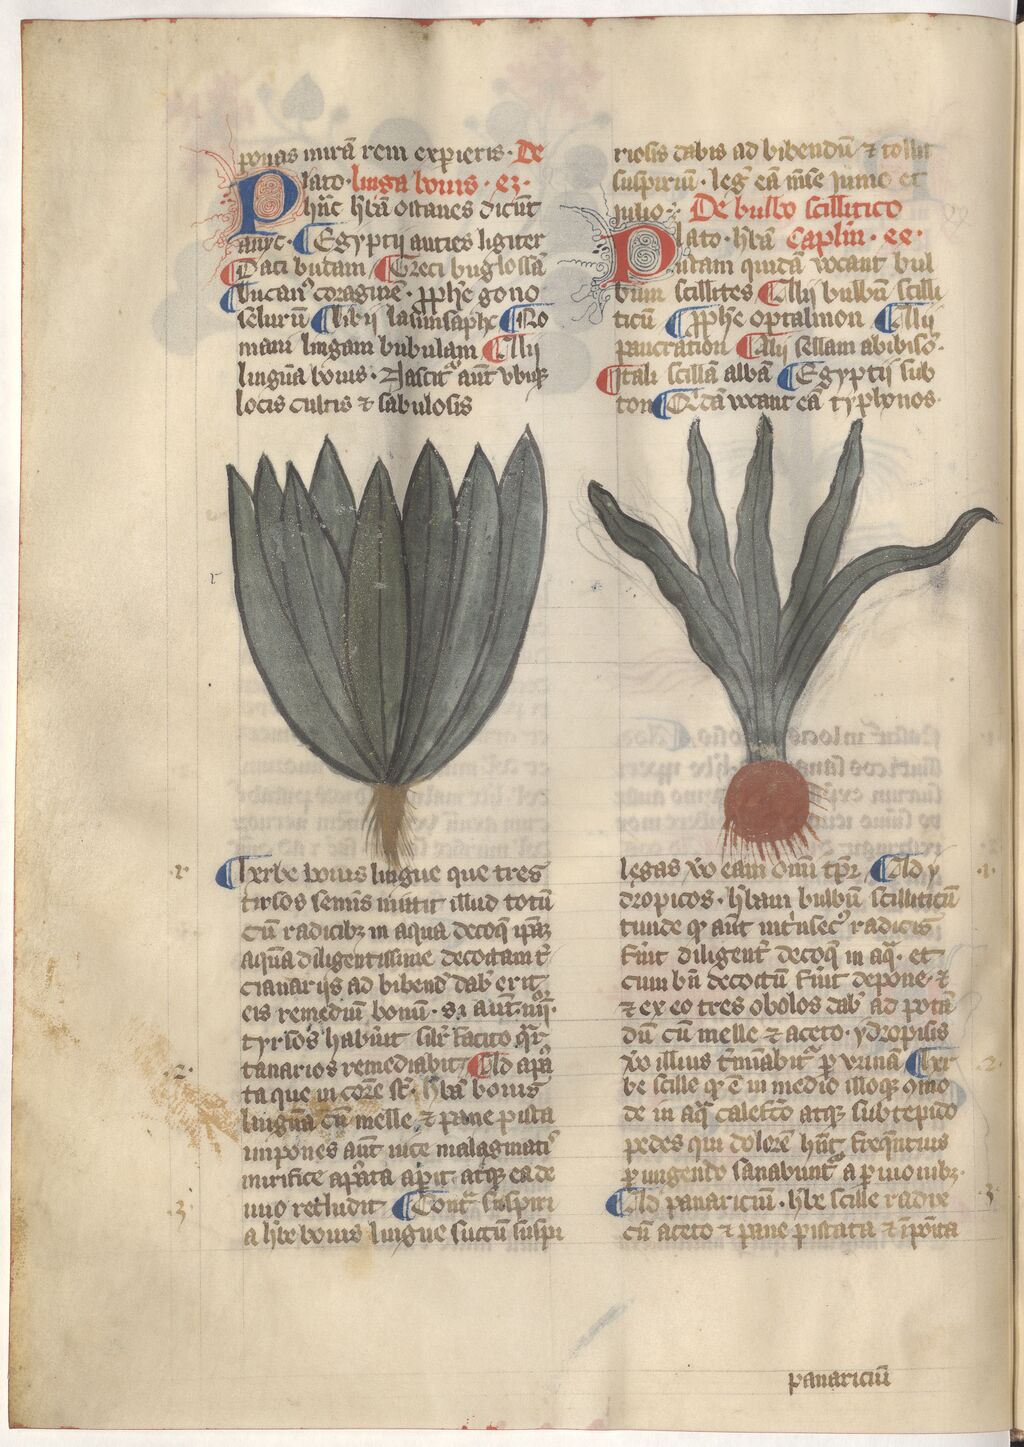 ponas mirā rem experieris. De
Plato. linga bouis. ez.
hāc hbā ostanes dicūt
Egyptij auries ligiter
Daci budam Greci buglossā
Lucani coraginē. pphe gono
selurū Libij lasimsaphe Ro
mani lingam bubulam Alij
linguā bouis. Nascit aūt vbiq
locis cultis ⁊ sabulosis
.1.
herbe bouis lingue que tres
tirsos seminis mittit illud totū
cū radicibz in aqua decoq ipāz
aquā diligentissime decoctam
ad bibend dab erit
eis remediū bonū. Si aūt
tyrsos habūit silr facito
remediabit
.2.
Ad apā
ta que in corꝑe st. hbā bouis
linguā cū melle ⁊ pane pista
impones aūt vice malagmatis
mirifice apta apit atq ea de
nuo recludit
.3.
Cont suspiri
a hbe bouis lingue succū suspi
riosis dabis ad bibendū ⁊ tollit
suspiriū. leg eā mēse junio et
julio. De bulbo scillitico
Plato. hbā Caplm. ee.
quidā vocant bul
bum scillites Alij bulbū scilli
ticū pphe optalmon Alij
pancration Alij sellam abibiso.
Itali scillā albā Egyptij sub
ton Qdā vocant eā typhonos.
.1.
legas vo eam omī tpr. Ad y
dropicos. hbam bulbū scilliticū
tunde qr aūt intrinsec radicis
fuit diligent decoq in aq. et
cum bn decoctū fuit depone. ⁊
⁊ ex eo tres obolos dab ad potā
dū cū melle ⁊ aceto. ydropisis
vo illius p vrinā
.2.
her
be scille qr ē in medio illoq omo
de in aq calefcō atq subtepido
pedes qui dolorē hnt frequtius
pungendo sanabunt
.3.
Ad panariciū. hbe scille radice
cū aceto ⁊ pane pistata ⁊ īposita
panariciū